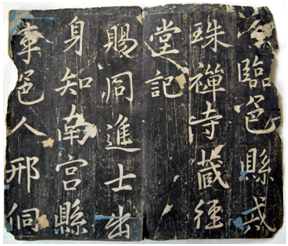 臨邑縣戒
珠禪寺藏經
堂記
賜同進士出
身知南宮縣
事邑人邢侗